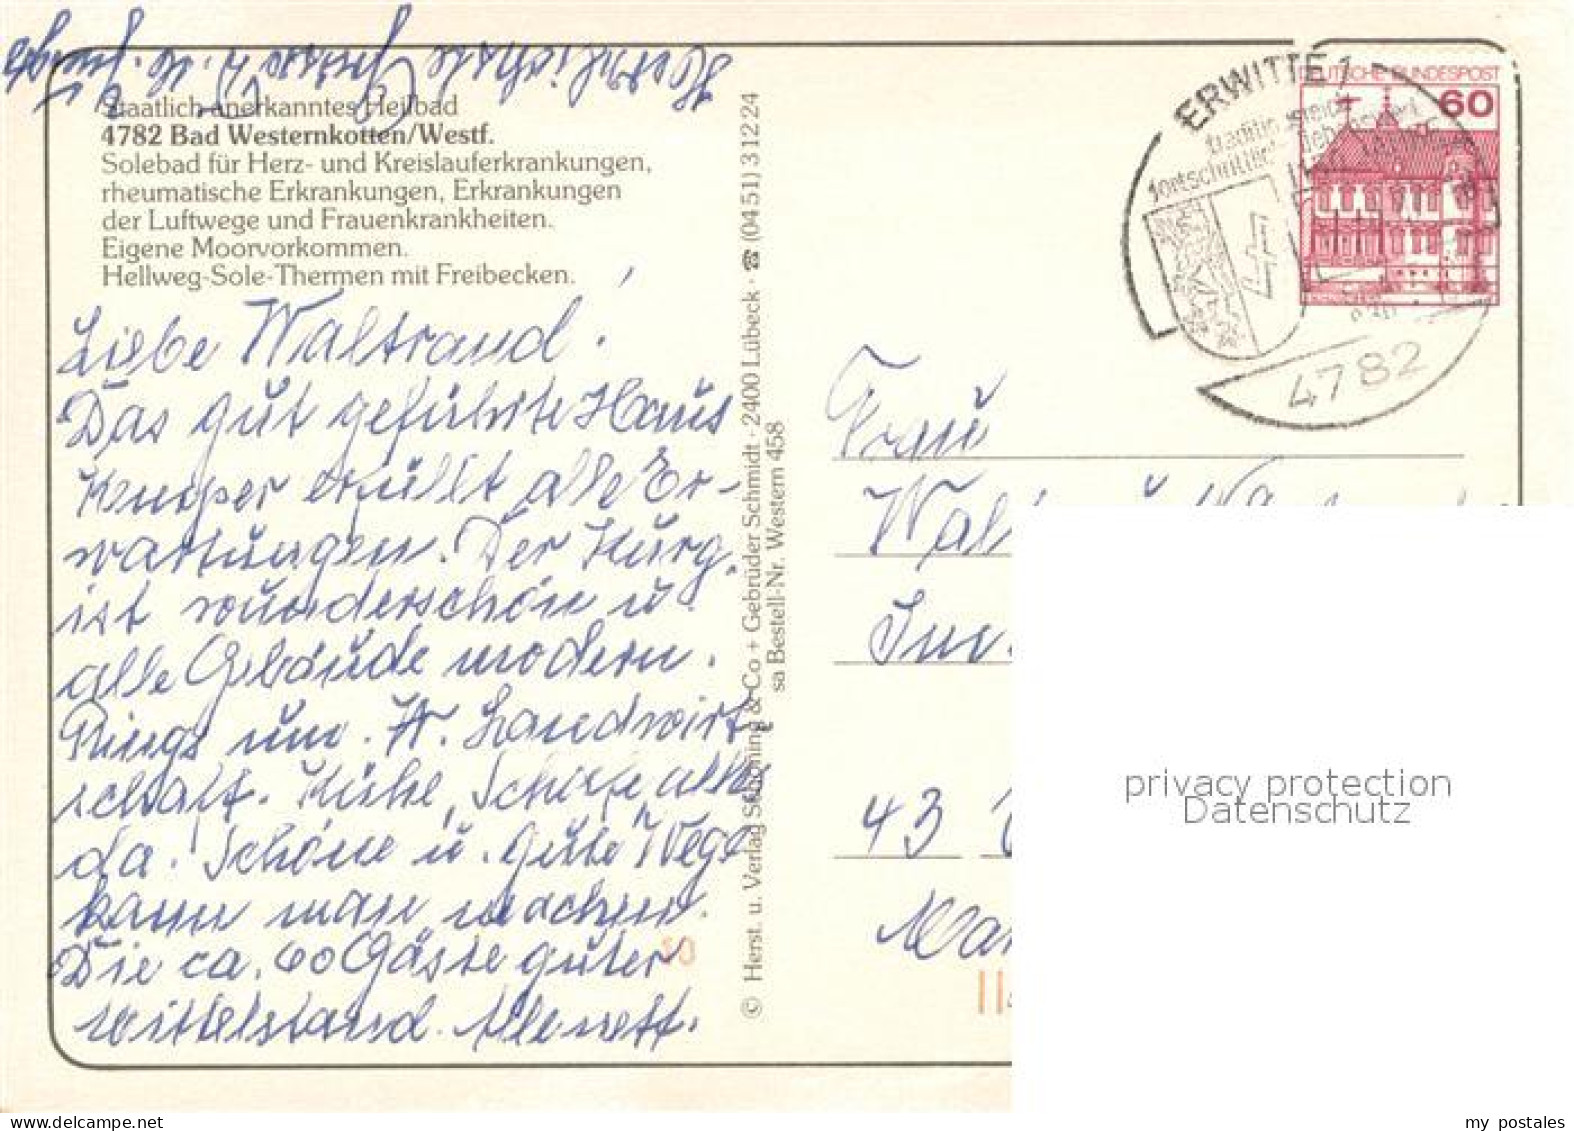 Staatlich anerkanntes Heilbad
4782 Bad Westernkotten/Westf.
Solebad für Herz- und Kreislauferkrankungen,
rheumatische Erkrankungen, Erkrankungen
der Luftwege und Frauenkrankheiten.
Eigene Moorvorkommen.
Hellweg-Sole-Thermen mit Freibecken.
Liebe Waltraud!
Das gut geführte Haus
erfüllt alle Er-
wartungen. Der Kurg.
ist wunderschön u.
alle Gebäude modern.
Rings um. W. Landwirt-
schaft. Kühe, Schafe alles
da. Schöne u. gute Wege
kann man machen.
Die ca. 60 Gäste guter
Mittelstand. Alle nett.
Herzlichste Grüsse
© Herst. u. Verlag Schöning & Co + Gebrüder Schmidt · 2400 Lübeck · ☎ (0451) 31224
sa Bestell-Nr. Western 458
ERWITTE 1
fortschrittlich
4782
DEUTSCHE BUNDESPOST
60
Frau
43
privacy protection
Datenschutz
my postales